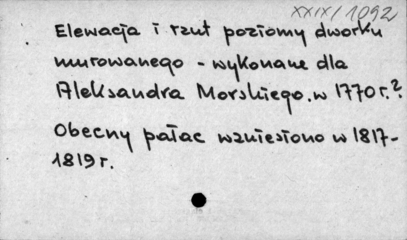 XXIX/1092
Elewacja i rzut poziomy dworku
murowanego - wykonane dla
Aleksandra Morskiego. w 1770 r.?
Obecny pałac wzniesiono w 1817-
1819 r.